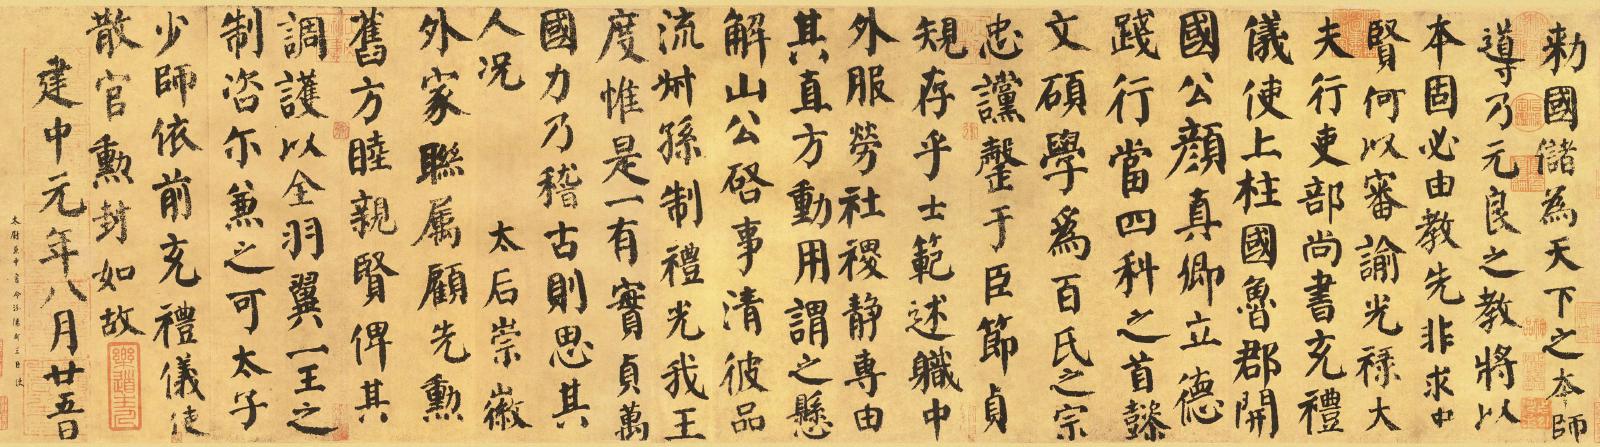 勑國儲為天下之本師
導乃元良之教將以
本固必由教先非求中
賢何以審諭光祿大
夫行吏部尚書充禮
儀使上柱國魯郡開
國公顏真卿立德
踐行當四科之首懿
文碩學為百氏之宗
忠讜罄于臣節貞
規存乎士範述職中
外服勞社稷静專由
其直方動用謂之懸
解山公啓事清彼品
流叔孫制禮光我王
度惟是一有實貞萬
國力乃稽古則思其
人况 太后崇徽
外家聯屬顧先勳
舊方睦親賢俾其
調護以全羽翼一王之
制咨尔兼之可太子
少師依前充禮儀使
散官勳封如故
建中元年八月廿五日
太尉兼中書令汾陽郡王臣使